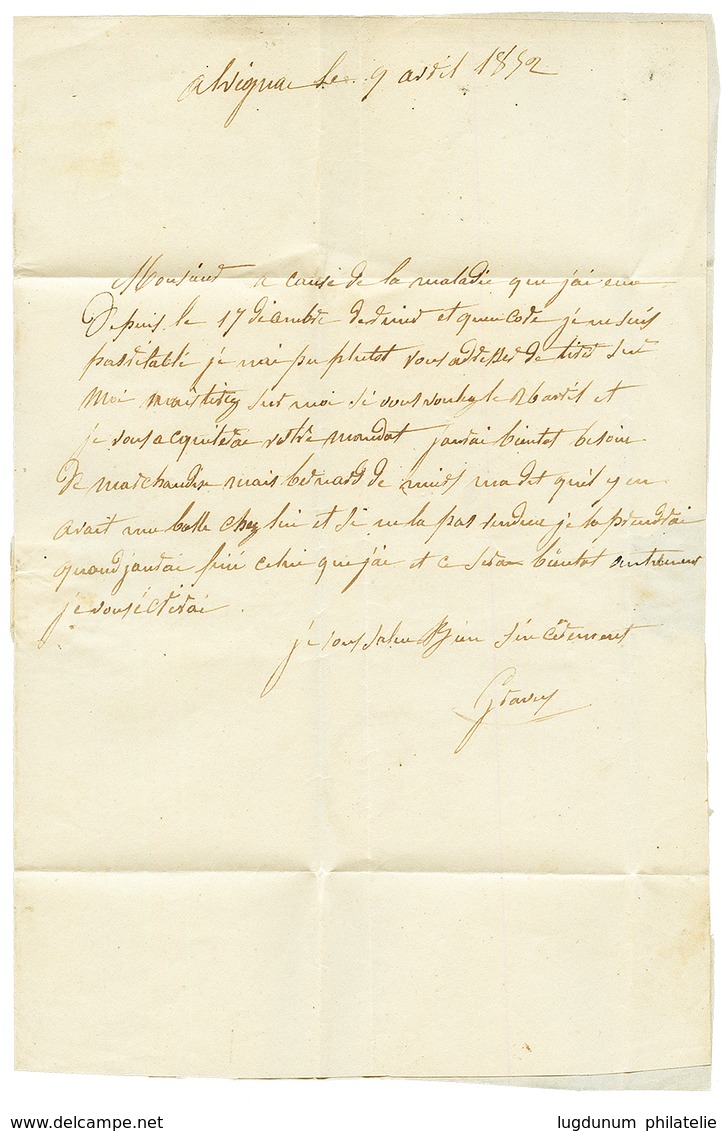 alvignac le 9 avril 1852
Monsieur a cause de la maladie que jai eue
Depuis le 17 décembre dernier et quencore je ne suis
pas rétabli je nai pu plutot vous adresser de tirer sur
moi mais tirez sur moi si vous voulez le 26 avril et
je vous acquiterai votre mandat jaurai bientot besoin
De marchandise mais bernard de miers ma dit quil y en
avait une balle chez lui et si ne la pas vendue je la prendrai
quand jaurai fini celui que jai et ce sera bientot autrement
je vous écrirai.
je vous salue bien sincèrement
delcampe.net
lugdunum philatelie